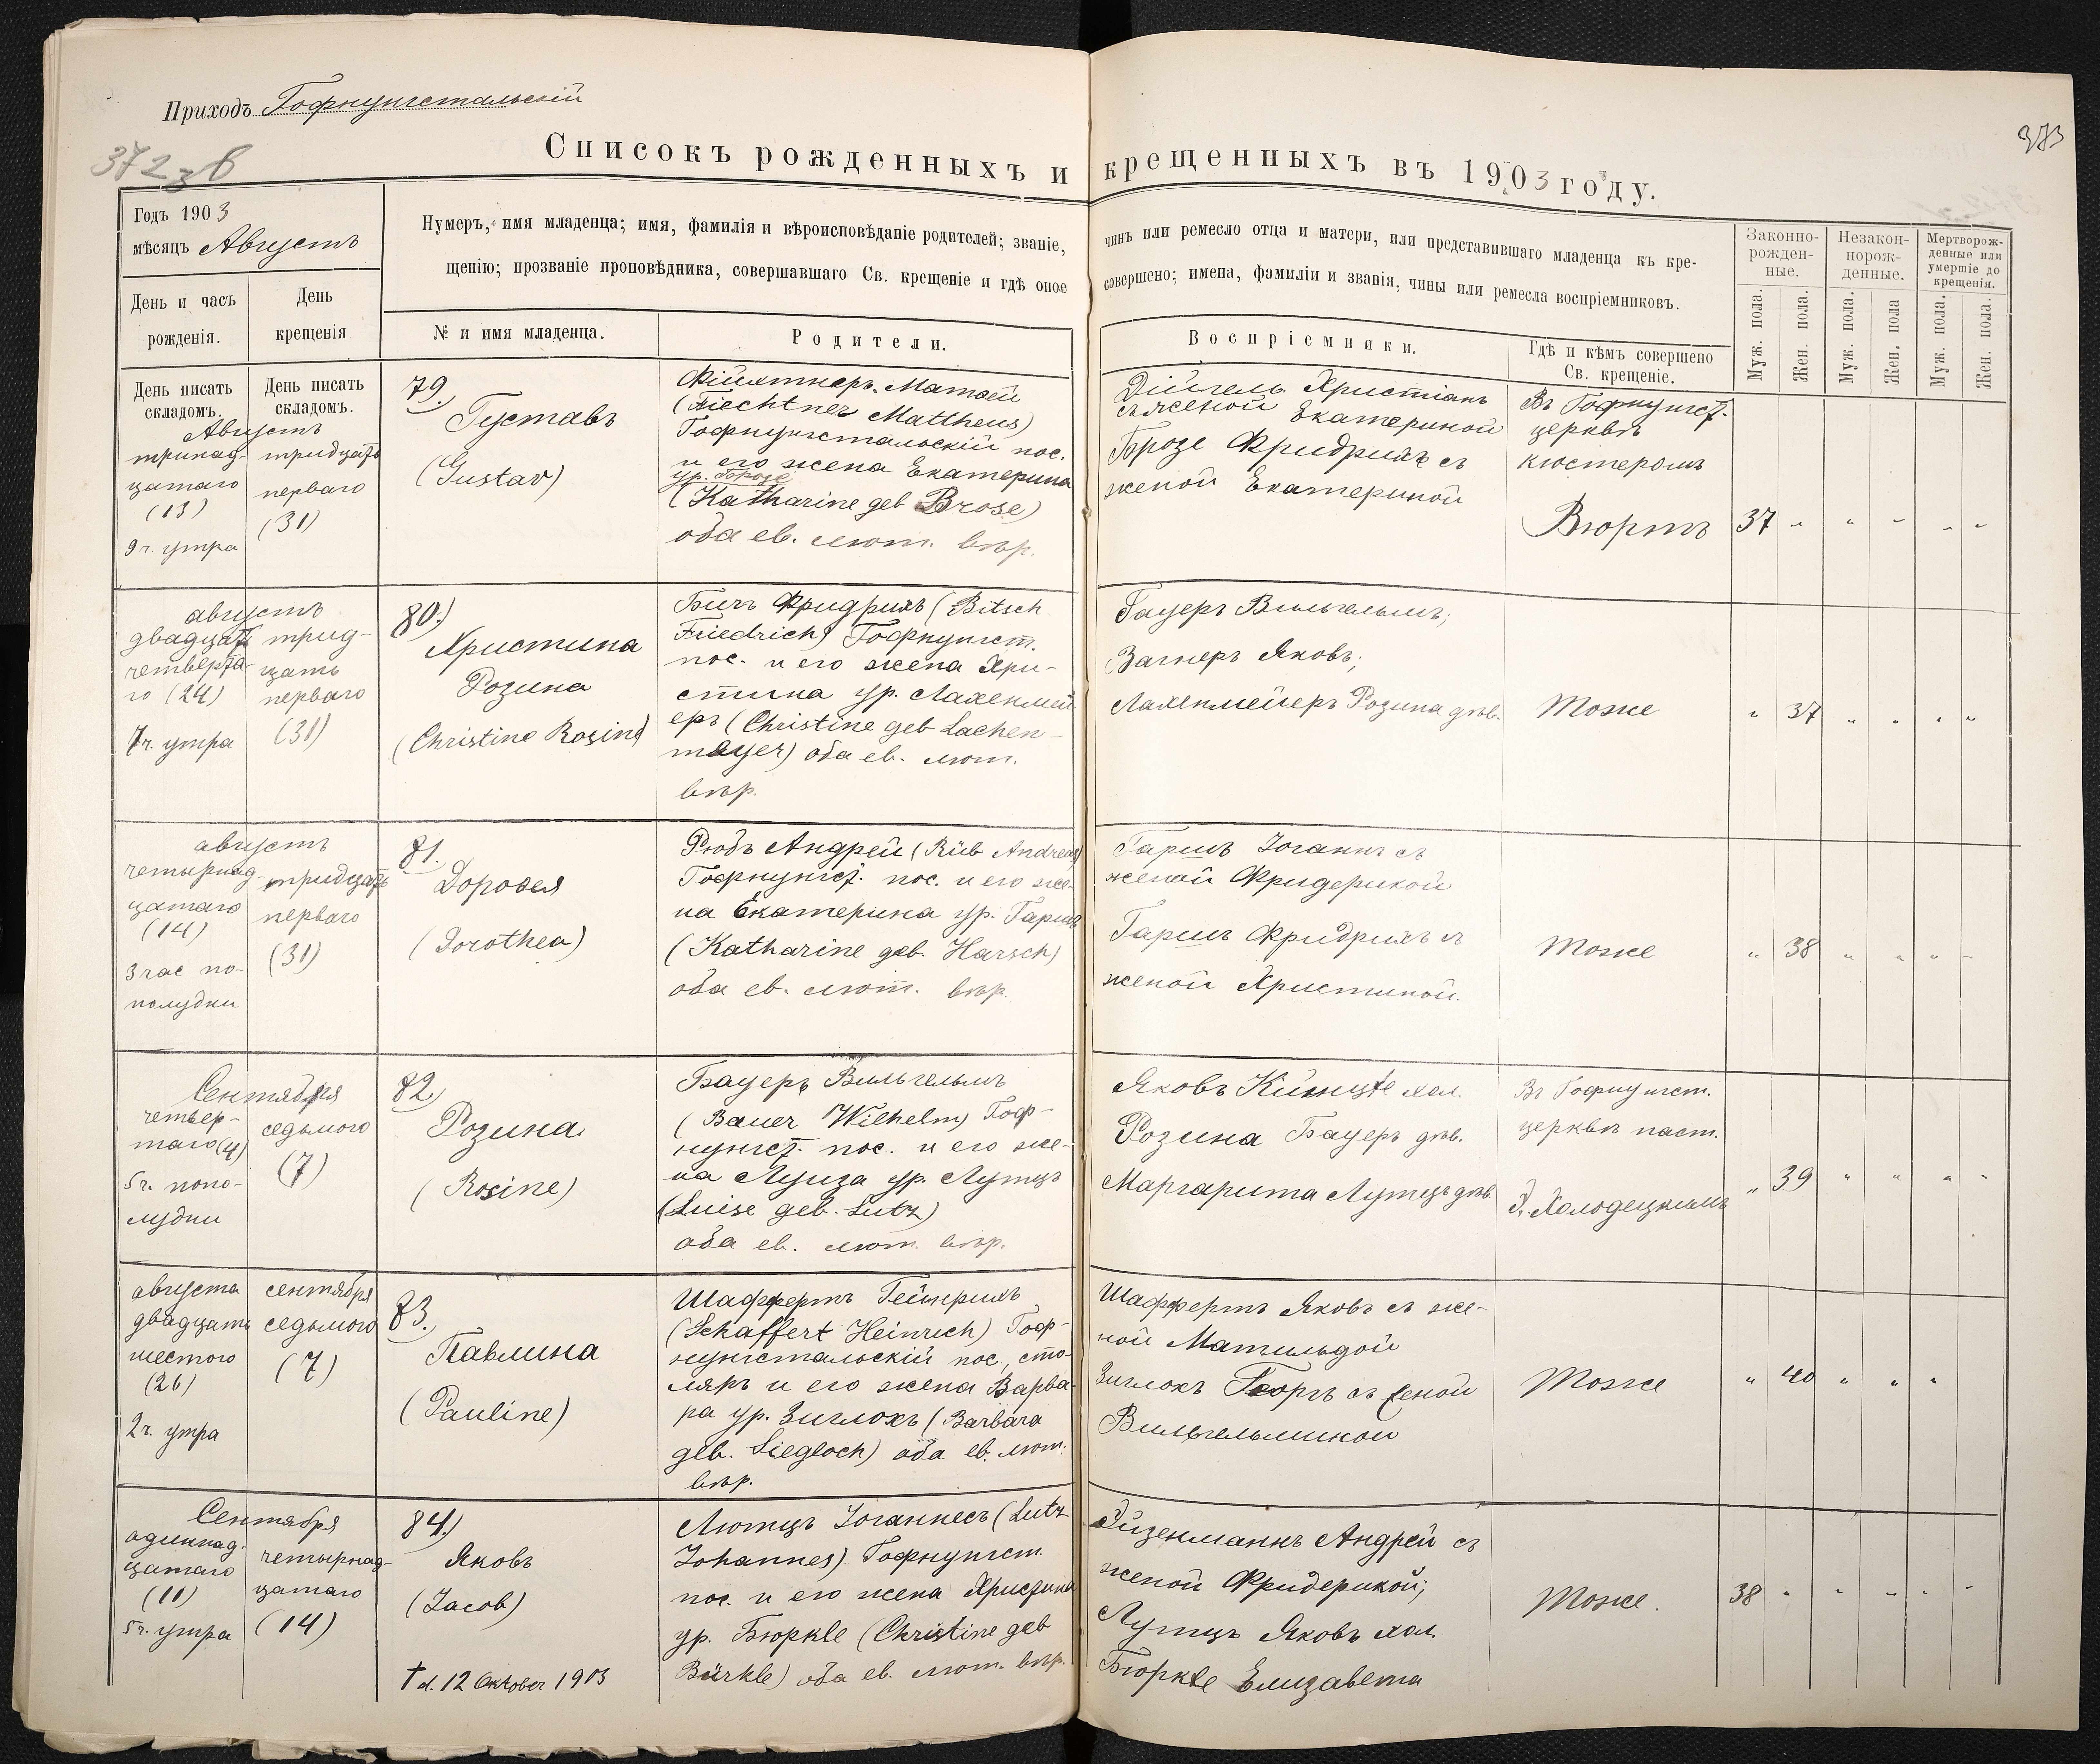 Приходъ Гофнунгстальскій
372 об
373
Списокъ рожденныхъ и крещенныхъ въ 1903 году.
Годъ 1903
мѣсяцъ Августъ
День и часъ
рожденія.
День
крещенія
Нумеръ, имя младенца; имя, фамилія и вѣроисповѣданіе родителей; званіе, чинъ или ремесло отца и матери, или представившаго младенца къ кре-
щенію; прозваніе проповѣдника, совершавшаго Св. крещеніе и гдѣ оное совершено; имена, фамиліи и званія, чины или ремесла воспріемниковъ.
№ и имя младенца.
Родители.
Воспріемники.
Гдѣ и кѣмъ совершено
Св. крещеніе.
Законно-
рожден-
ные.
Незакон-
норож-
денные.
Мертворож-
денные или
умершіе до
крещенія.
Муж. пола.
Жен. пола.
Муж. пола.
Жен. пола
Муж. пола.
Жен. пола.
День писать
складомъ.
День писать
складомъ.
Августъ
тринад-
цатаго
(13)
9 ч. утра
тридцать
перваго
(31)
79.
Густавъ
(Gustav)
Фійхтнеръ Матѳей
(Fiechtner Mattheus)
Гофнунгстальскій пос.
и его жена Екатерина
ур. Брозе
(Katharine geb Brose)
оба ев. лют. вѣр.
Дійгель Христіанъ
съ женой Екатериной
Брозе Фридрихъ съ
женой Екатериной
Въ Гофнунгст.
церквѣ
кюстеромъ
Вюртъ
37 " " " " "
августъ
двадцать
четверта-
го (24)
7 ч. утра
трид-
цать
перваго
(31)
80.)
Христина
Розина
(Christine Rosine)
Бичъ Фридрихъ (Bitsch
Friedrich) Гофнунгст.
пос. и его жена Хри-
стина ур. Лахенмей
еръ (Christine geb Lachen-
mayer) оба ев. лют.
вѣр.
Гауеръ Вильгельмъ;
Вагнеръ Яковъ;
Лахенмейеръ Розина дѣв.
Тоже
" 37 " " " "
августъ
четырнад-
цатаго
(14)
3 час по-
полудни
тридцать
перваго
(31)
81.
Доровея
(Dorothea)
Рюбъ Андрей (Rüb Andreas)
Гофнунгст. пос. и его же-
на Екатерина ур. Гаршъ
(Katharine geb. Harsch)
оба ев. лют. вѣр.
Гаршъ Іоганнъ съ
женой Фридерикой
Гаршъ Фридрихъ съ
женой Христиной.
Тоже
" 38 " " " "
Сентября
четвер-
таго (4)
5 ч. попо-
лудни
седьмого
(7)
82
Розина
(Rosine)
Бауеръ Вильгельмъ
(Bauer Wilhelm) Гоф-
нунгст. пос. и его же-
на Луиза ур. Лутцъ
(Luise geb. Lutz)
оба ев. лют. вѣр.
Яковъ хол.
Розина Бауеръ дѣв.
Маргарита Лутцъ дѣв.
Въ Гофнунгст.
церквѣ паст.
Холодецкимъ
" 39 " " " "
августа
двадцать
шестого
(26)
2 ч. утра
сентября
седьмого
(7)
83.
Павлина
(Pauline)
Шаффертъ Гейнрихъ
(Schaffert Heinrich) Гоф-
нунгстальскій пос., сто-
ляръ и его жена Варва-
ра ур. Зиглохъ (Barbara
geb. Siegloch) оба ев. лют.
вѣр.
Шаффертъ Яковъ съ же-
ной Матильдой
Зиглохъ Георгъ съ женой
Вильгельминой
Тоже
" 40 " " "
Сентября
одиннад-
цатаго
(11)
5 ч. утра
четырнад-
цатаго
(14)
84.)
Яковъ
(Jacob)
† d. 12 Oktober 1903
Лютцъ Іоганнесъ (Lutz
Johannes) Гофнунгст.
пос. и его жена Христина
ур. Бюркle (Christine geb
Bürkle) оба ев. лют. вѣр.
Эйзенманнъ Андрей съ
женой Фридерикой;
Лутцъ Яковъ хол.
Бюркle Елизавета
Тоже.
38 " " " " "